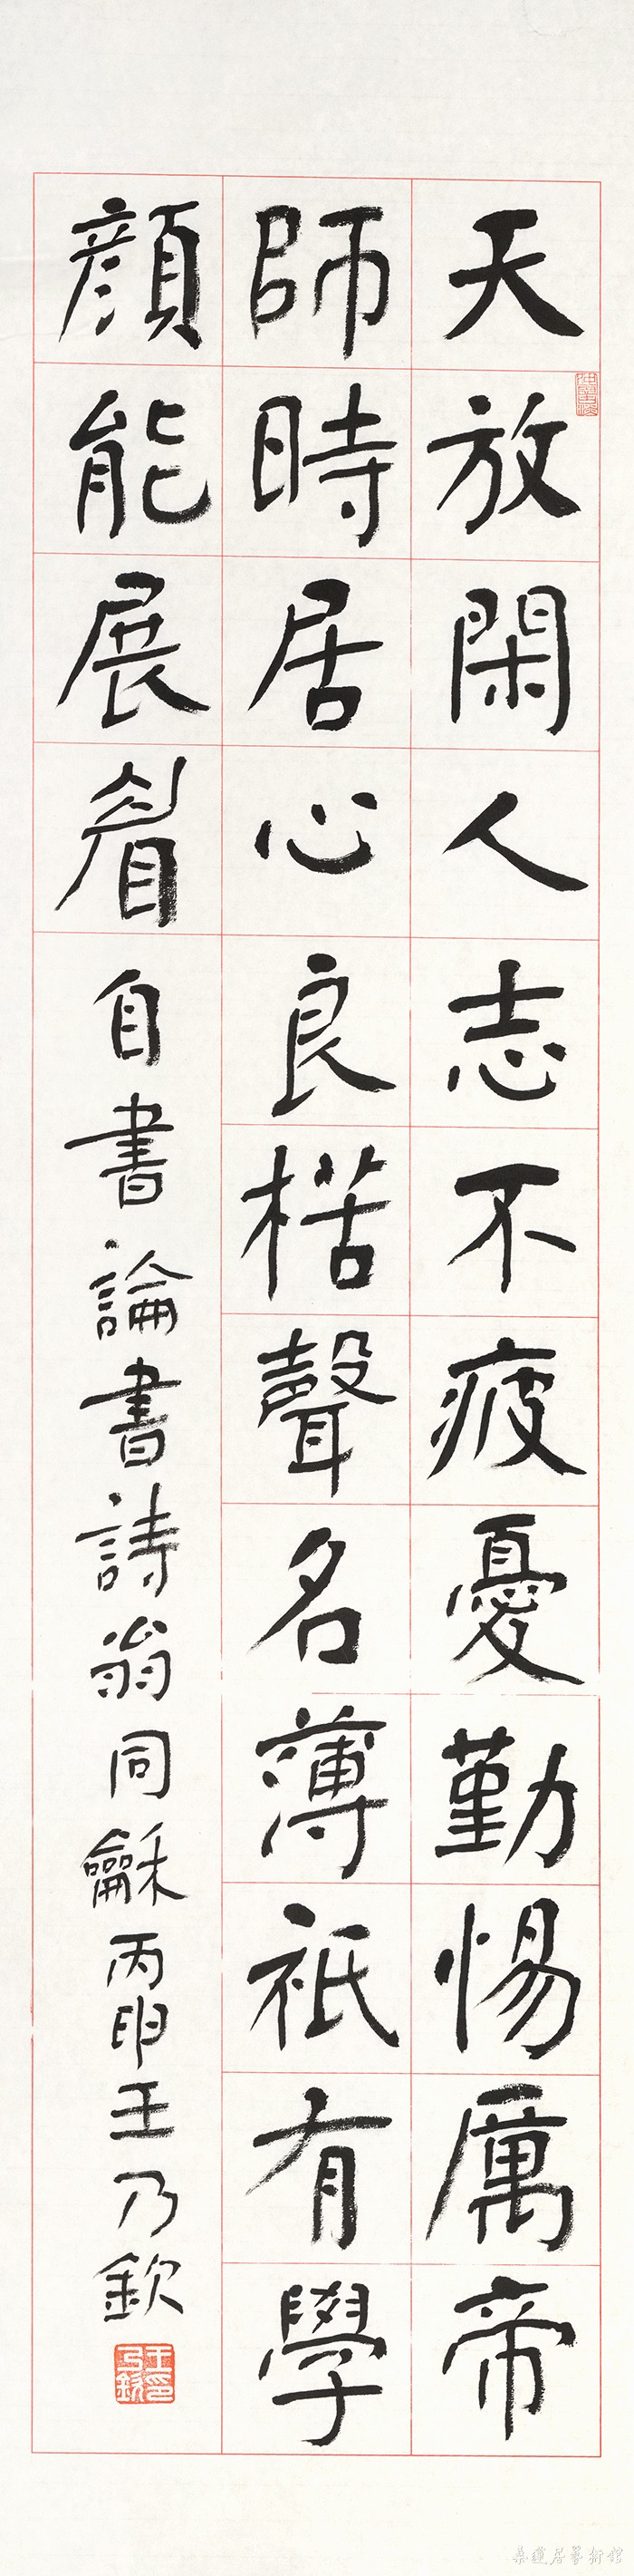 天放閑人志不疲憂勤惕厲帝
師時居心良楛聲名薄祇有學
顏能展眉自書論書詩翁同龢丙申王乃欽